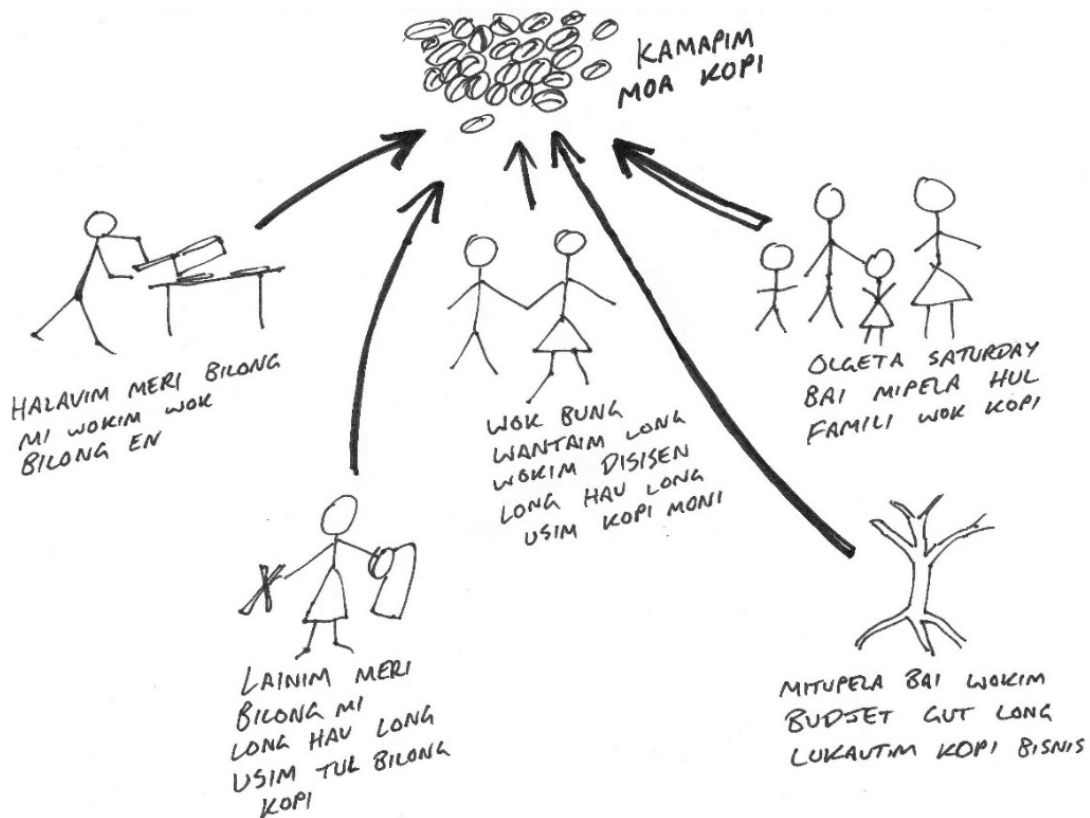 KAMAPIM
MOA KOPI
HALAVIM MERI BILONG
MI WOKIM WOK
BILONG EN
WOK BUNG
WANTAIM LONG
WOKIM DISISEN
LONG HAU LONG
USIM KOPI MONI
OLGETA SATURDAY
BAI MIPELA HUL
FAMILI WOK KOPI
LAINIM MERI
BILONG MI
LONG HAU LONG
USIM TUL BILONG
KOPI
MITUPELA BAI WOKIM
BUDJET GUT LONG
LUKAUTIM KOPI BISNIS